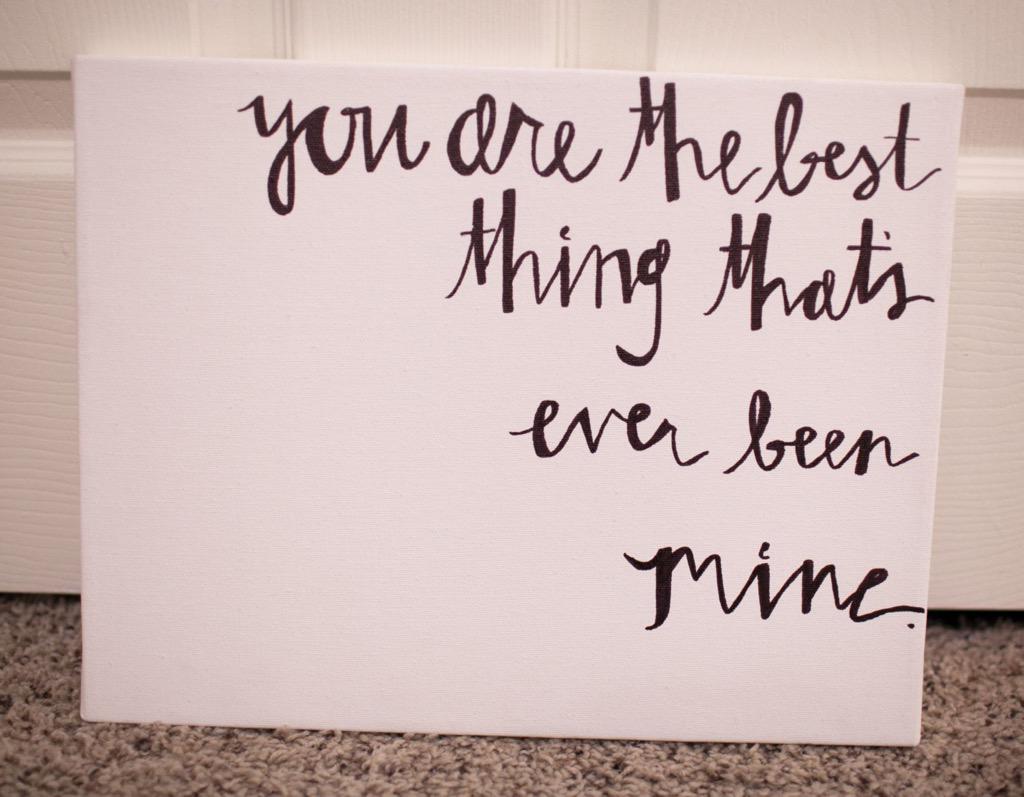 you are the best
thing that's
ever been
mine.